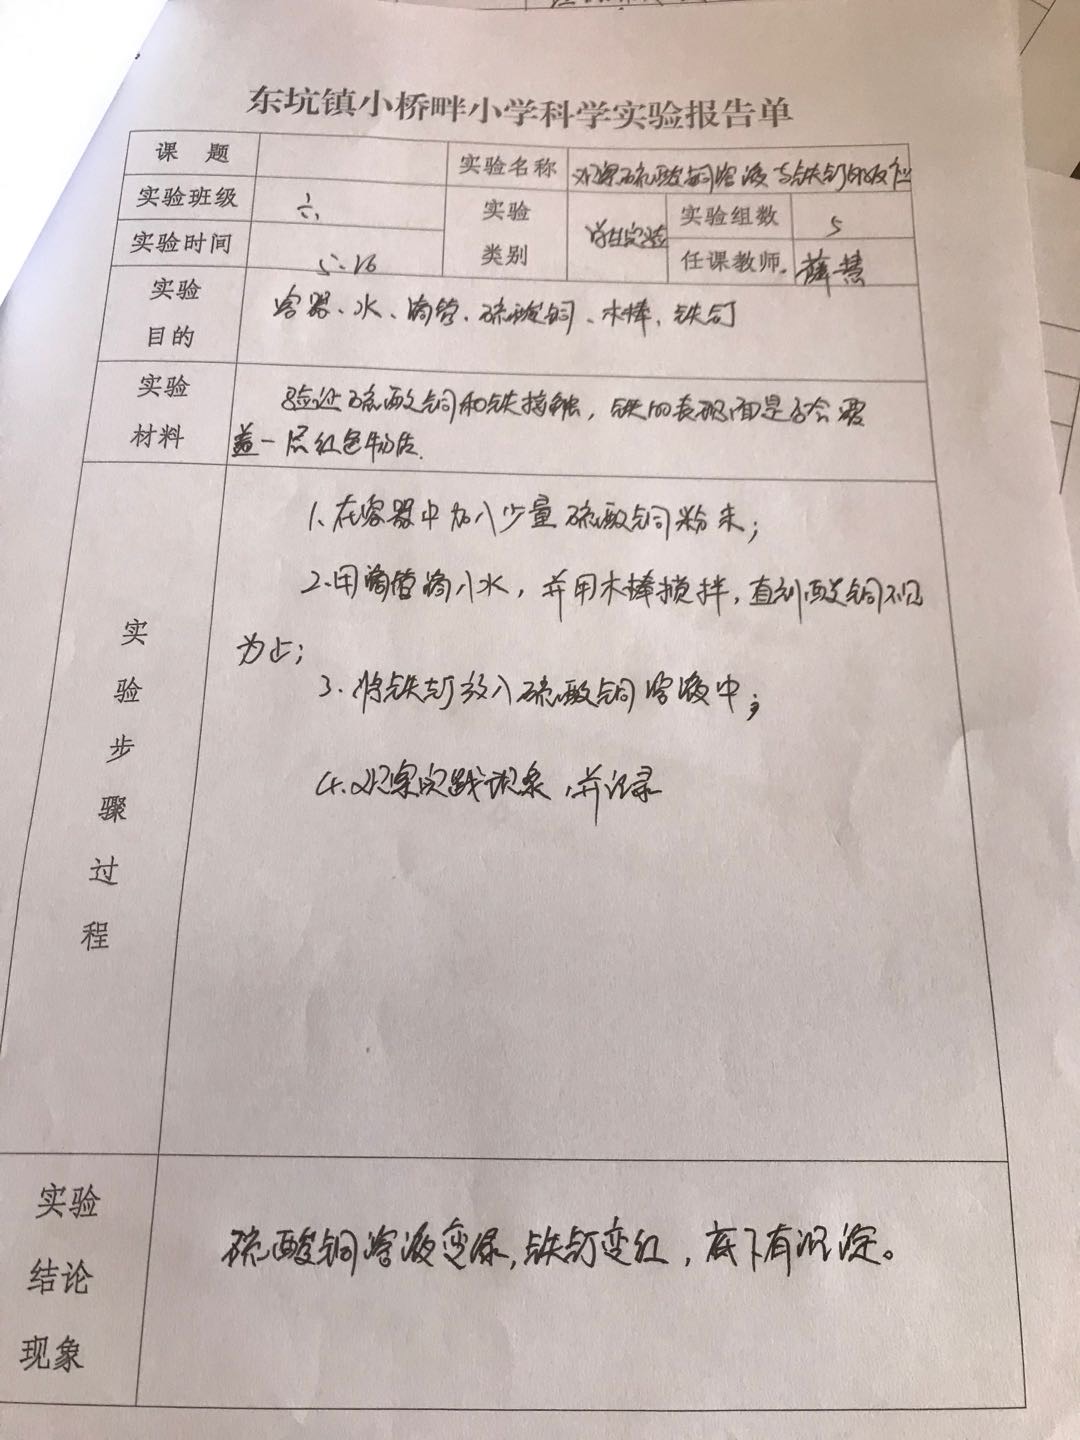 东坑镇小桥畔小学科学实验报告单
课 题
实验名称 观察硫酸铜溶液与铁钉的反应
实验班级 六
实验 类别 学生实验
实验组数 5
实验时间 5.16
任课教师 薛慧
实验 目的
容器、水、滴管、硫酸铜、木棒、铁钉
实验 材料
验证硫酸铜和铁接触，铁的表面是否会覆
盖一层红色物质.
实验步骤过程
1、在容器中加入少量硫酸铜粉末；
2.用滴管滴入水，并用木棒搅拌，直到酸铜不见
为止；
3.将铁钉放入硫酸铜溶液中；
4.观察实践现象，并记录
实验 结论 现象
硫酸铜溶液变绿，铁钉变红，底下有沉淀。